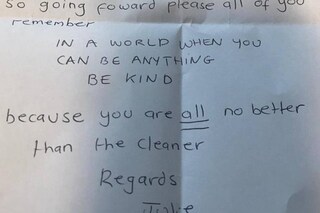 So going foward please all of you
remember
IN A WORLD WHEN YOU
CAN BE ANYTHING
BE KIND
because you are all no better
than the cleaner
Regards
Julie